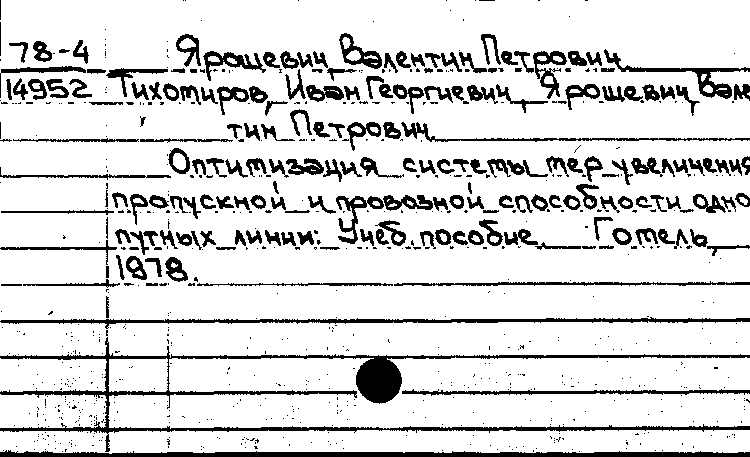 78-4 Ярошевич, Валентин Петрович
14952 Тихомиров, Иван Георгиевич, Ярошевич, Вале
тин Петрович
Оптимизация системы мер увеличения
пропускной и провозной способности одно
путных линии: Учеб. пособие. Гомель,
1978.